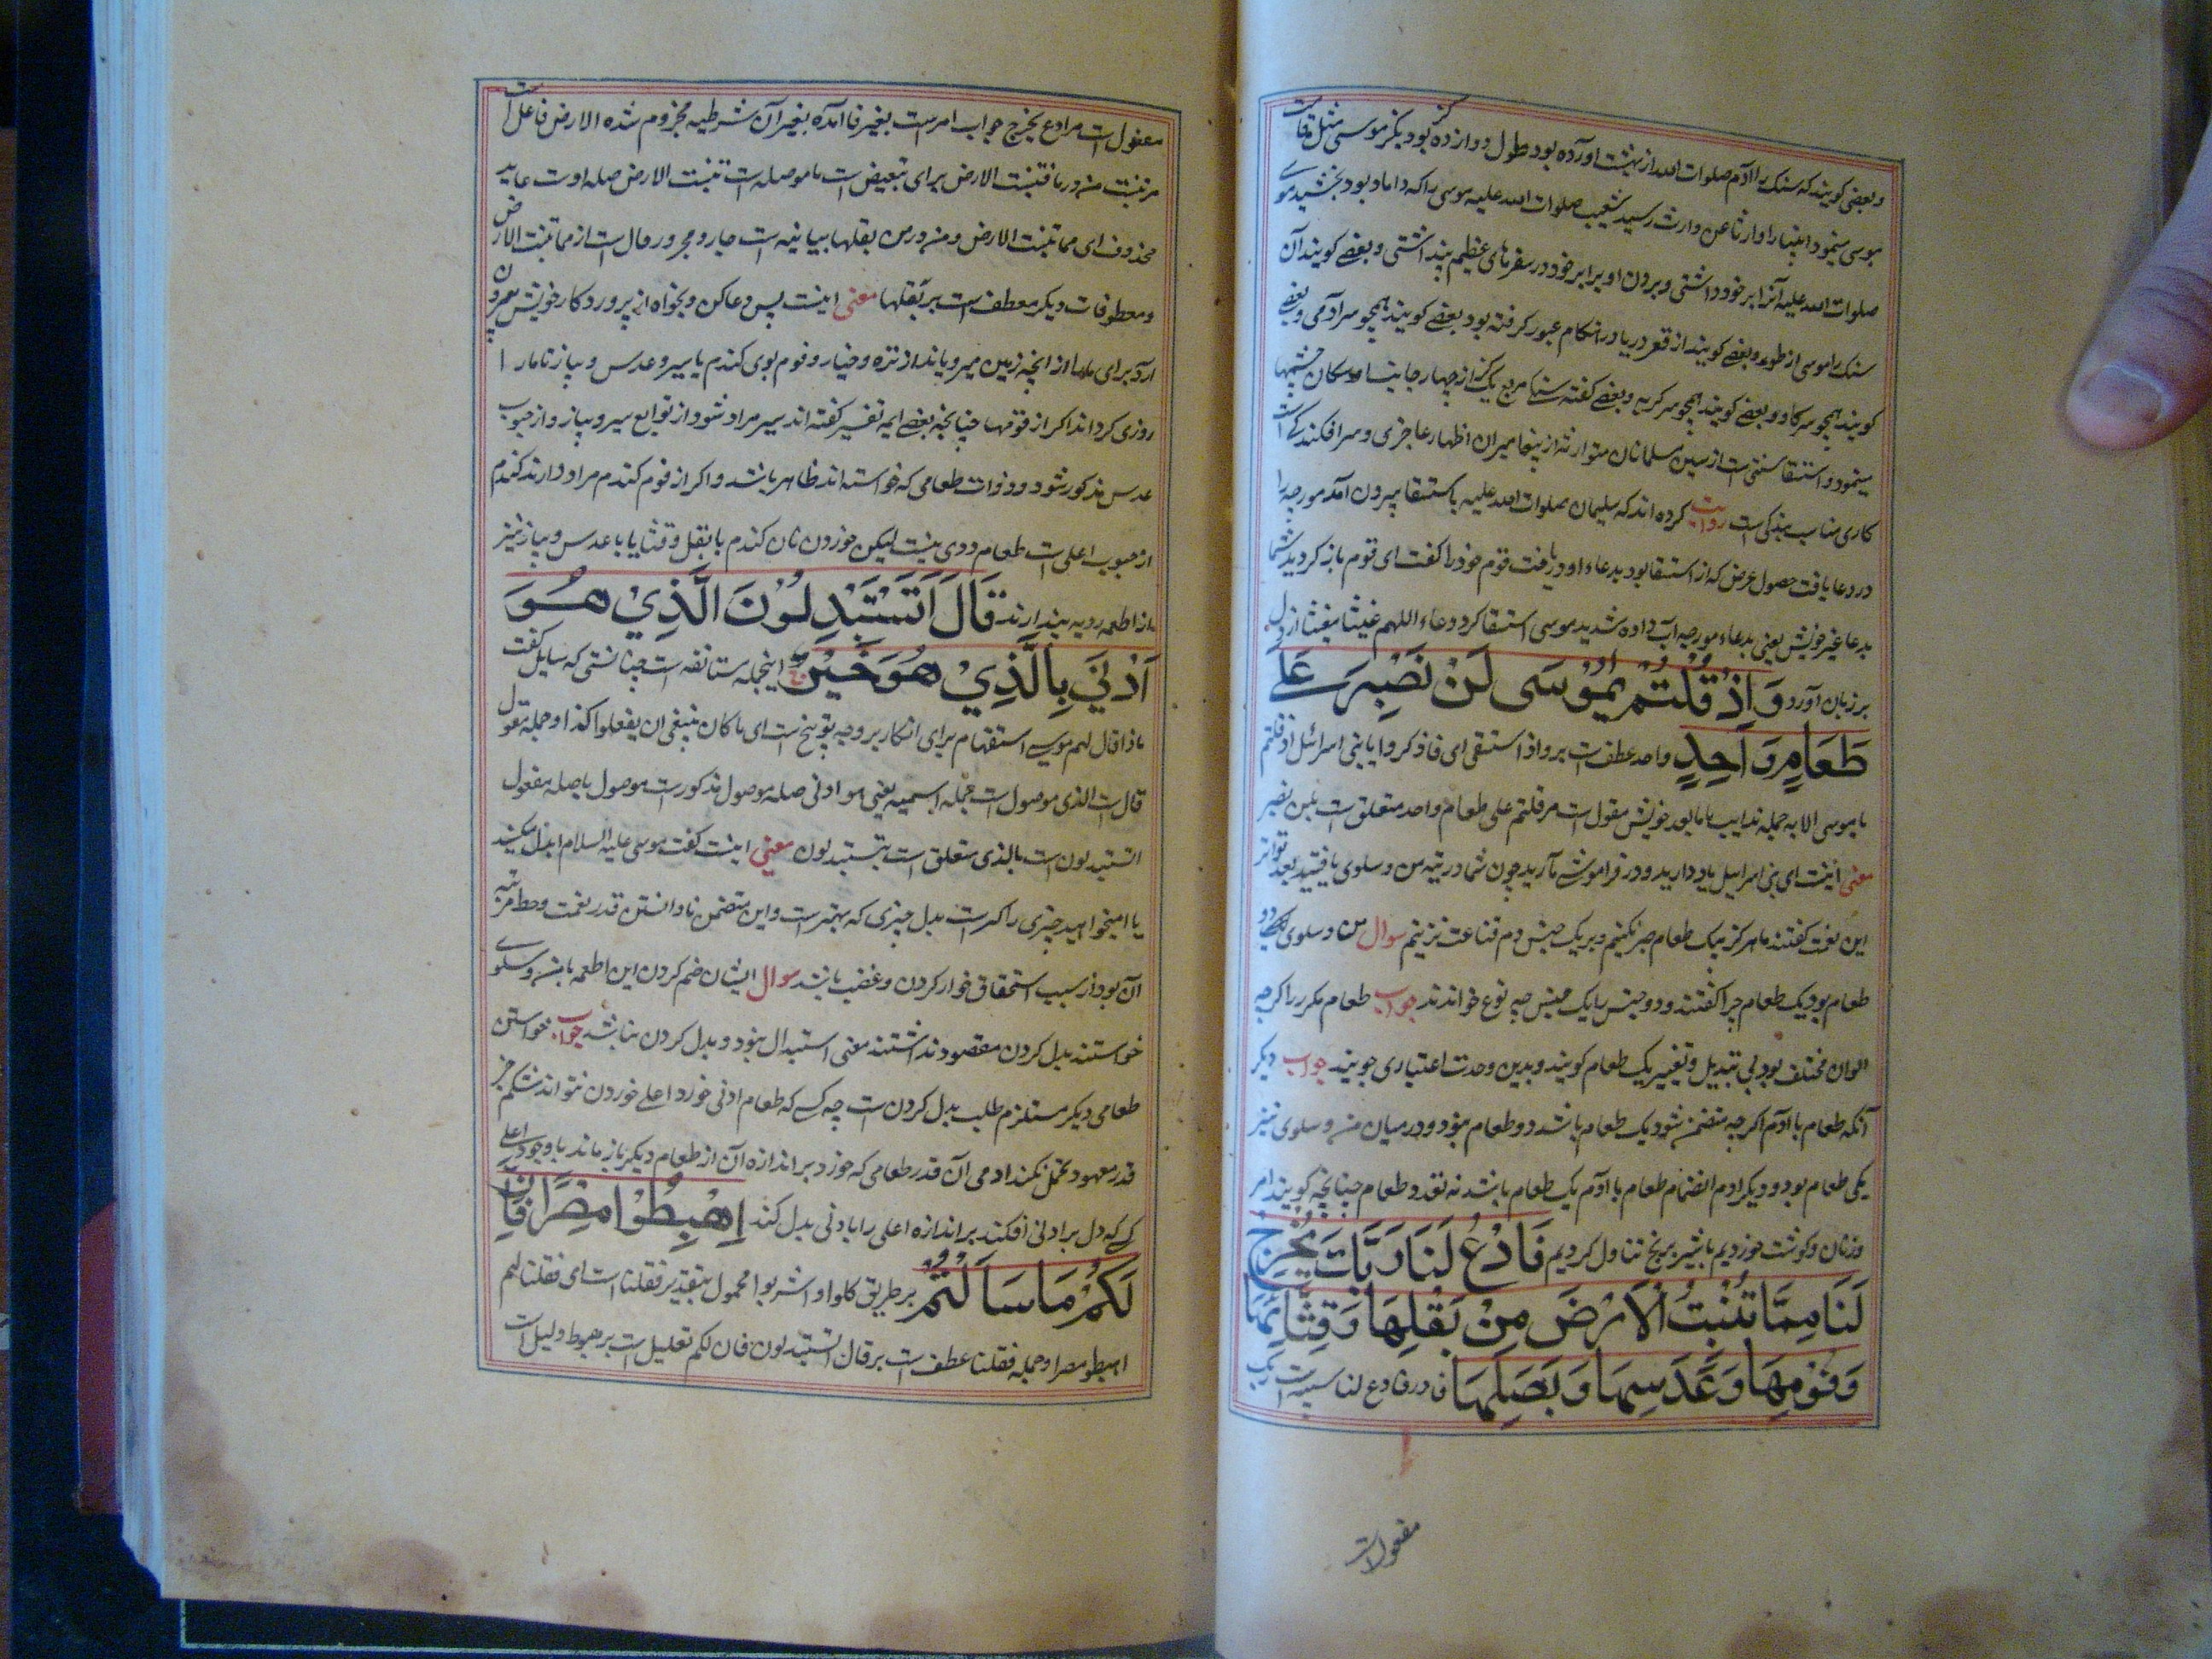 و بعضی کویند که سنک را آدم صلوات الله از بهشت آورده بود طول دوازده کز بود دیکر موسی مثل قامت
موسی صلوات الله علیه موسی را که داماد بود بخشید
صلوات الله علیه آنرا برابر خود داشتی و بردن او برابر خود در سفرهای عظیم پنداشتی و بعضی کویند آن
سنک را موسی از طور و بعضی کویند از قعر دریا در هنکام عبور کرفته بود بعضی کویند همچو سر آدمی و بعضی
کویند همچو سر کاو و بعضی کویند همچو سر کربه و بعضی کفته سنکی مربع یک کز از چهار جانب
و استسقا سنتی است از سنن مسلمانان متوارثه از پیغامبران اظهار عاجزی و سرافکندکی است
کاری مناسب بندکی است روایت کرده اند که سلیمان صلوات الله علیه باستسقا بیرون آمد مورچه را
در دعا یافت حصول غرض که از استسقا بود بدعاء او دریافت قوم خود را کفت ای قوم باز کردید شما
بدعا غیر خویش یعنی بدعاء مورچه آب داده شدید موسی استسقا کرد و دعاء اللهم غیثا مغیثا از دل
بر زبان آورد وَاِذْ قُلْتُمْ يٰمُوْسٰى لَنْ نَصْبِرَ عَلٰى
طَعَامٍ وَاحِدٍ واحد عطف است بر واذ استسقی ای فاذکروا یا بنی اسرائیل اذ قلتم
یا موسی الایه جمله ندا یست با مابعد خویش مقول است مر قلتم علی طعام واحد متعلق است بلن نصبر
معنی اینست ای بنی اسرایل یاد دارید و در فراموشی مآرید چون شما در تیه من و سلوی یافتید بعد تواتر
این نعمت کفتند ما هرکز بیک طعام صبر نکنیم و بریک جنس دم قناعت نزنیم سوال من و سلوی دو
طعام بود یک طعام چرا کفتند و دو جنس را یک جنس چه نوع خواندند جواب طعام مکرر را اکرچه
الوان مختلف بود بی تبدیل و تغییر یک طعام کویند و بدین وحدت اعتباری جویند جواب دیکر
آنکه طعام با ادام اکرچه متضمن شود یک طعام باشد دو طعام نبود و درمیان من و سلوی نیز
یکی طعام بود و دیکر ادام انضمام طعام با ادام یک طعام باشد نه دو طعام چنانچه کویند امروز
نان و کوشت خوردیم یا شیر برنج تناول کردیم فَادْعُ لَنَا رَبَّكَ يُخْرِجْ
لَنَا مِمَّا تُنْبِتُ الْاَرْضُ مِنْ بَقْلِهَا وَقِثَّائِهَا
وَفُوْمِهَا وَعَدَسِهَا وَبَصَلِهَا فا در فادع لنا سببیه است ربک
مفعول است
مفعول است مر ادع یخرج جواب امر است بغیر فا آمده بغیر آن شرطیه مجزوم شده الارض فاعل است
مر تنبت من در مما تنبت الارض برای تبعیض است ما موصله است تنبت الارض صله اوست عاید
محذوف ای مما تنبت الارض و من در من بقلها بیانیه است جار و مجرور حال است از مما تنبت الارض
و معطوفات دیکر معطف است بر بقلها معنی اینست پس دعا کن و بخواه از پروردکار خویش بیرون
آرد برای ما از انچه زمین میرویاند از تره و خیار و فوم بوی کندم یا سیر و عدس و پیاز تا مارا
روزی کرداند اکر از فومها چنانچه بعضی ایمه تفسیر کفته اند سیر مراد شود از توابع سیر و پیاز و از حبوب
عدس مذکور شود و دنوات طعامی که خواسته اند ظاهر باشد و اکر از فوم کندم مراد دارند کندم
از حبوب اعلی است طعام دوی نیست لیکن خوردن نان کندم با بقل و قثا یا با عدس و پیاز نیز
از اطعمه ردیه پندارند قَالَ اَتَسْتَبْدِلُوْنَ الَّذِيْ هُوَ
اَدْنٰى بِالَّذِيْ هُوَ خَيْرٌ اینجمله مستانفه است چنانستی که سایل کفت
ماذا قال لهم موسی استفهام برای انکار بر وجه توبیخ است ای ما کان ینبغی ان یفعلوا کذا و جمله مقول
قال است الذی موصول است جمله اسمیه یعنی هو ادنی صله موصول مذکورست موصول با صله مفعول
اتستبدلون است بالذی متعلق است بتستبدلون معنی اینست کفت موسی علیه السلام ابدل میکنید
یا میخواهید چیزی را کمرست بدل چیزی که بهترست و این متضمن نادانستن قدر نعمت و حط مرتبه
آن بود از سبب استحقاق خوار کردن و غضب باشد سوال ایشان ضم کردن این اطعمه با من و سلوی
خواستند بدل کردن مقصود نداشتند معنی استبدال نبود و بدل کردن نباشد جواب خواستن
طعامی دیکر مستلزم طلب بدل کردن است چه کسی که طعام ادنی خورد اعلی خوردن نتواند شکم جز
قدر معهود تحمل نکند ادمی آن قدر طعامی که خورد بر اندازه آن از طعام دیکر باز ماند با وجود اعلی
کسی که دل بر ادنی افکند بر اندازه اعلی را بادنی بدل کند اِهْبِطُوْا مِصْرًا فَاِنَّ
لَكُمْ مَا سَاَلْتُمْ بر طریق کلوا و اشربوا محمول بتقدیر فقلنا است ای فقلنا لهم
اهبطو مصرا و جمله فقلنا عطف است بر قال اتستبدلون فان لکم تعلیل است بر هبوط دلیل است